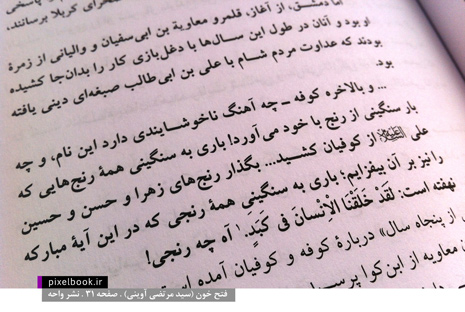 صحرای کربلا برسانند.
اما دمشق، از آغاز، قلمرو معاویة بن ابی‌سفیان و والیانی از زمرهٔ
او بود و آنان در طول این سال‌ها با دغل‌بازی کار را بدان‌جا کشیده
بودند که عداوت مردم شام با علی بن ابی‌طالب صبغه‌ای دینی یافته
بود.
... و بالاخره کوفه ـ چه آهنگ ناخوشایندی دارد این نام، و چه
بار سنگینی از رنج با خود می‌آورد! باری به سنگینی همهٔ رنج‌هایی که
علی از کوفیان کشید... بگذار رنج‌های زهرا و حسن و حسین
را نیز بر آن بیفزایم؛ باری به سنگینی همهٔ رنجی که در این آیهٔ مبارکه
نهفته است: لَقَدْ خَلَقْنَا الْاِنسانَ فی کَبَدٍ.¹ آه چه رنجی!
از پنجاه سال» دربارهٔ کوفه و کوفیان آمده است
معاویه از ابن‌کوا
pixelbook.ir
فتح خون (سید مرتضی آوینی) . صفحه ۳۱ . نشر واحه